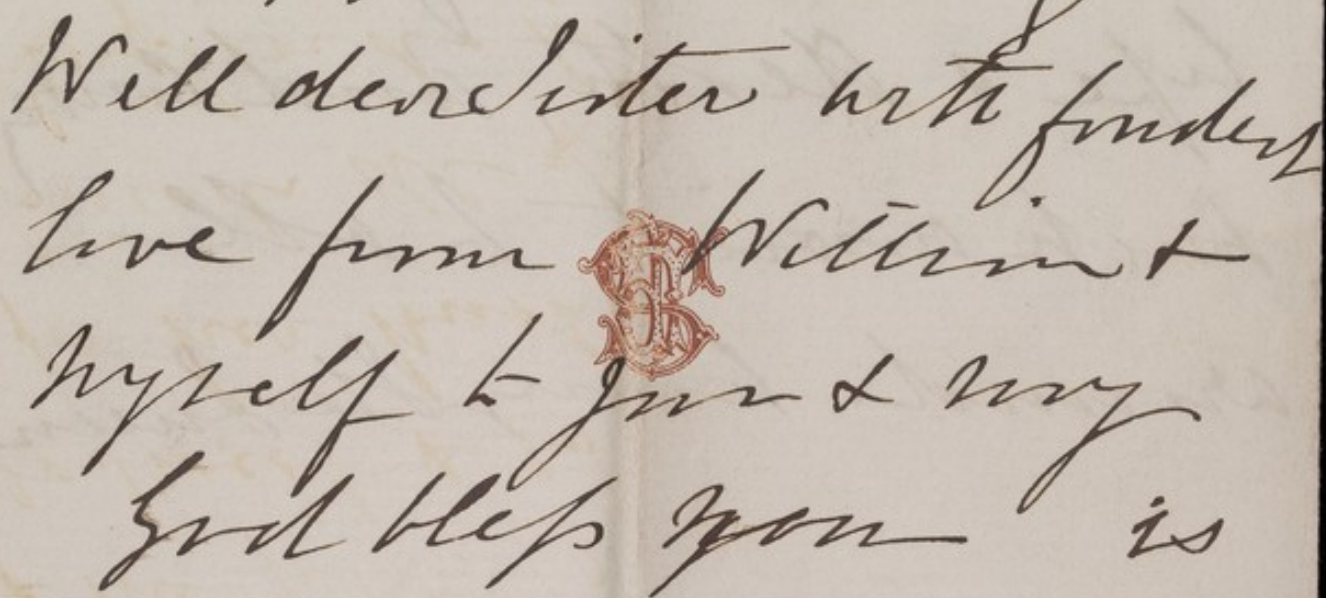 Well dear Sister with fondest
love from William &
Myself to you & may
God bless you is